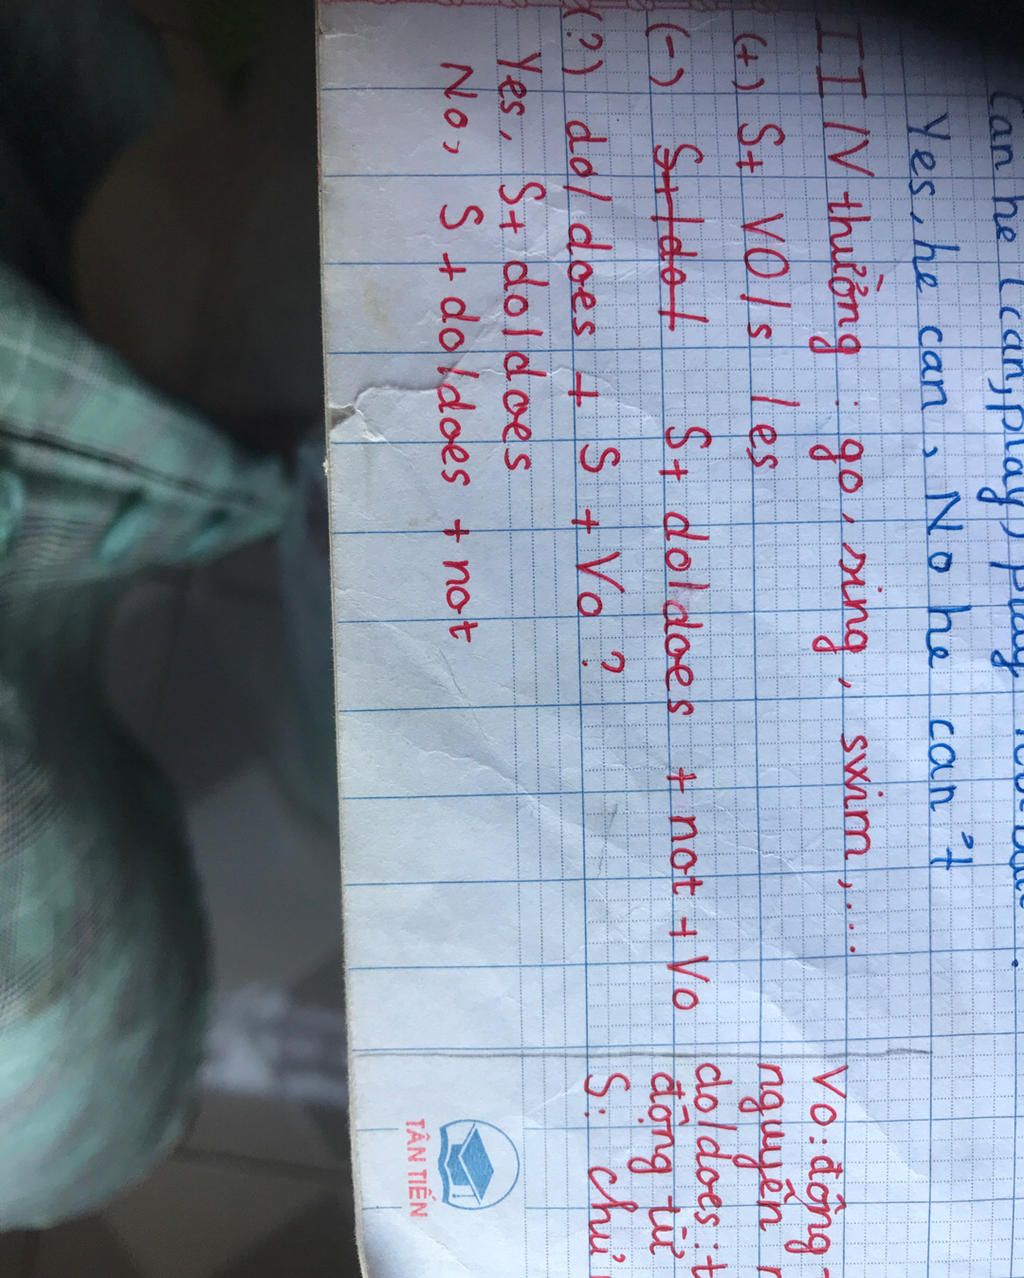 can he (can, play) play
Yes, he can, No he can't
II/V thường: go, sing, swim,...
(+) S+ VO/s/es
(-) S+/do+ S+ do/does + not + Vo
(?) do/does + S + Vo ?
Yes, S+ do/does
No, S + do/does + not
Vo: động
nguyên
do/does: t
động từ
S: chủ
TÂN TIẾN